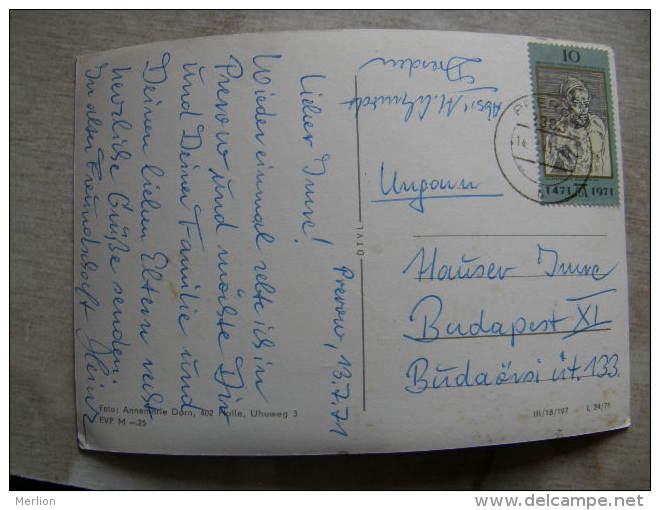 Prerow, 13.7.71
Lieber Imre!
Wieder einmal zelte ich in
Prerow und möchte Dir
und Deiner Familie und
Deinen lieben Eltern nebst
herzliche Grüße senden.
In alter Freundschaft Heinz
Foto: Annemarie Dorn, 402 Halle, Uhuweg 3
EVP M –.25
Abs.
Dresden
10
1471 1971
Ungarn
Hauser Imre
Budapest XI
Budaörsi út. 133.
III/18/197 L 24/71
Merlion
www.delcampe.net